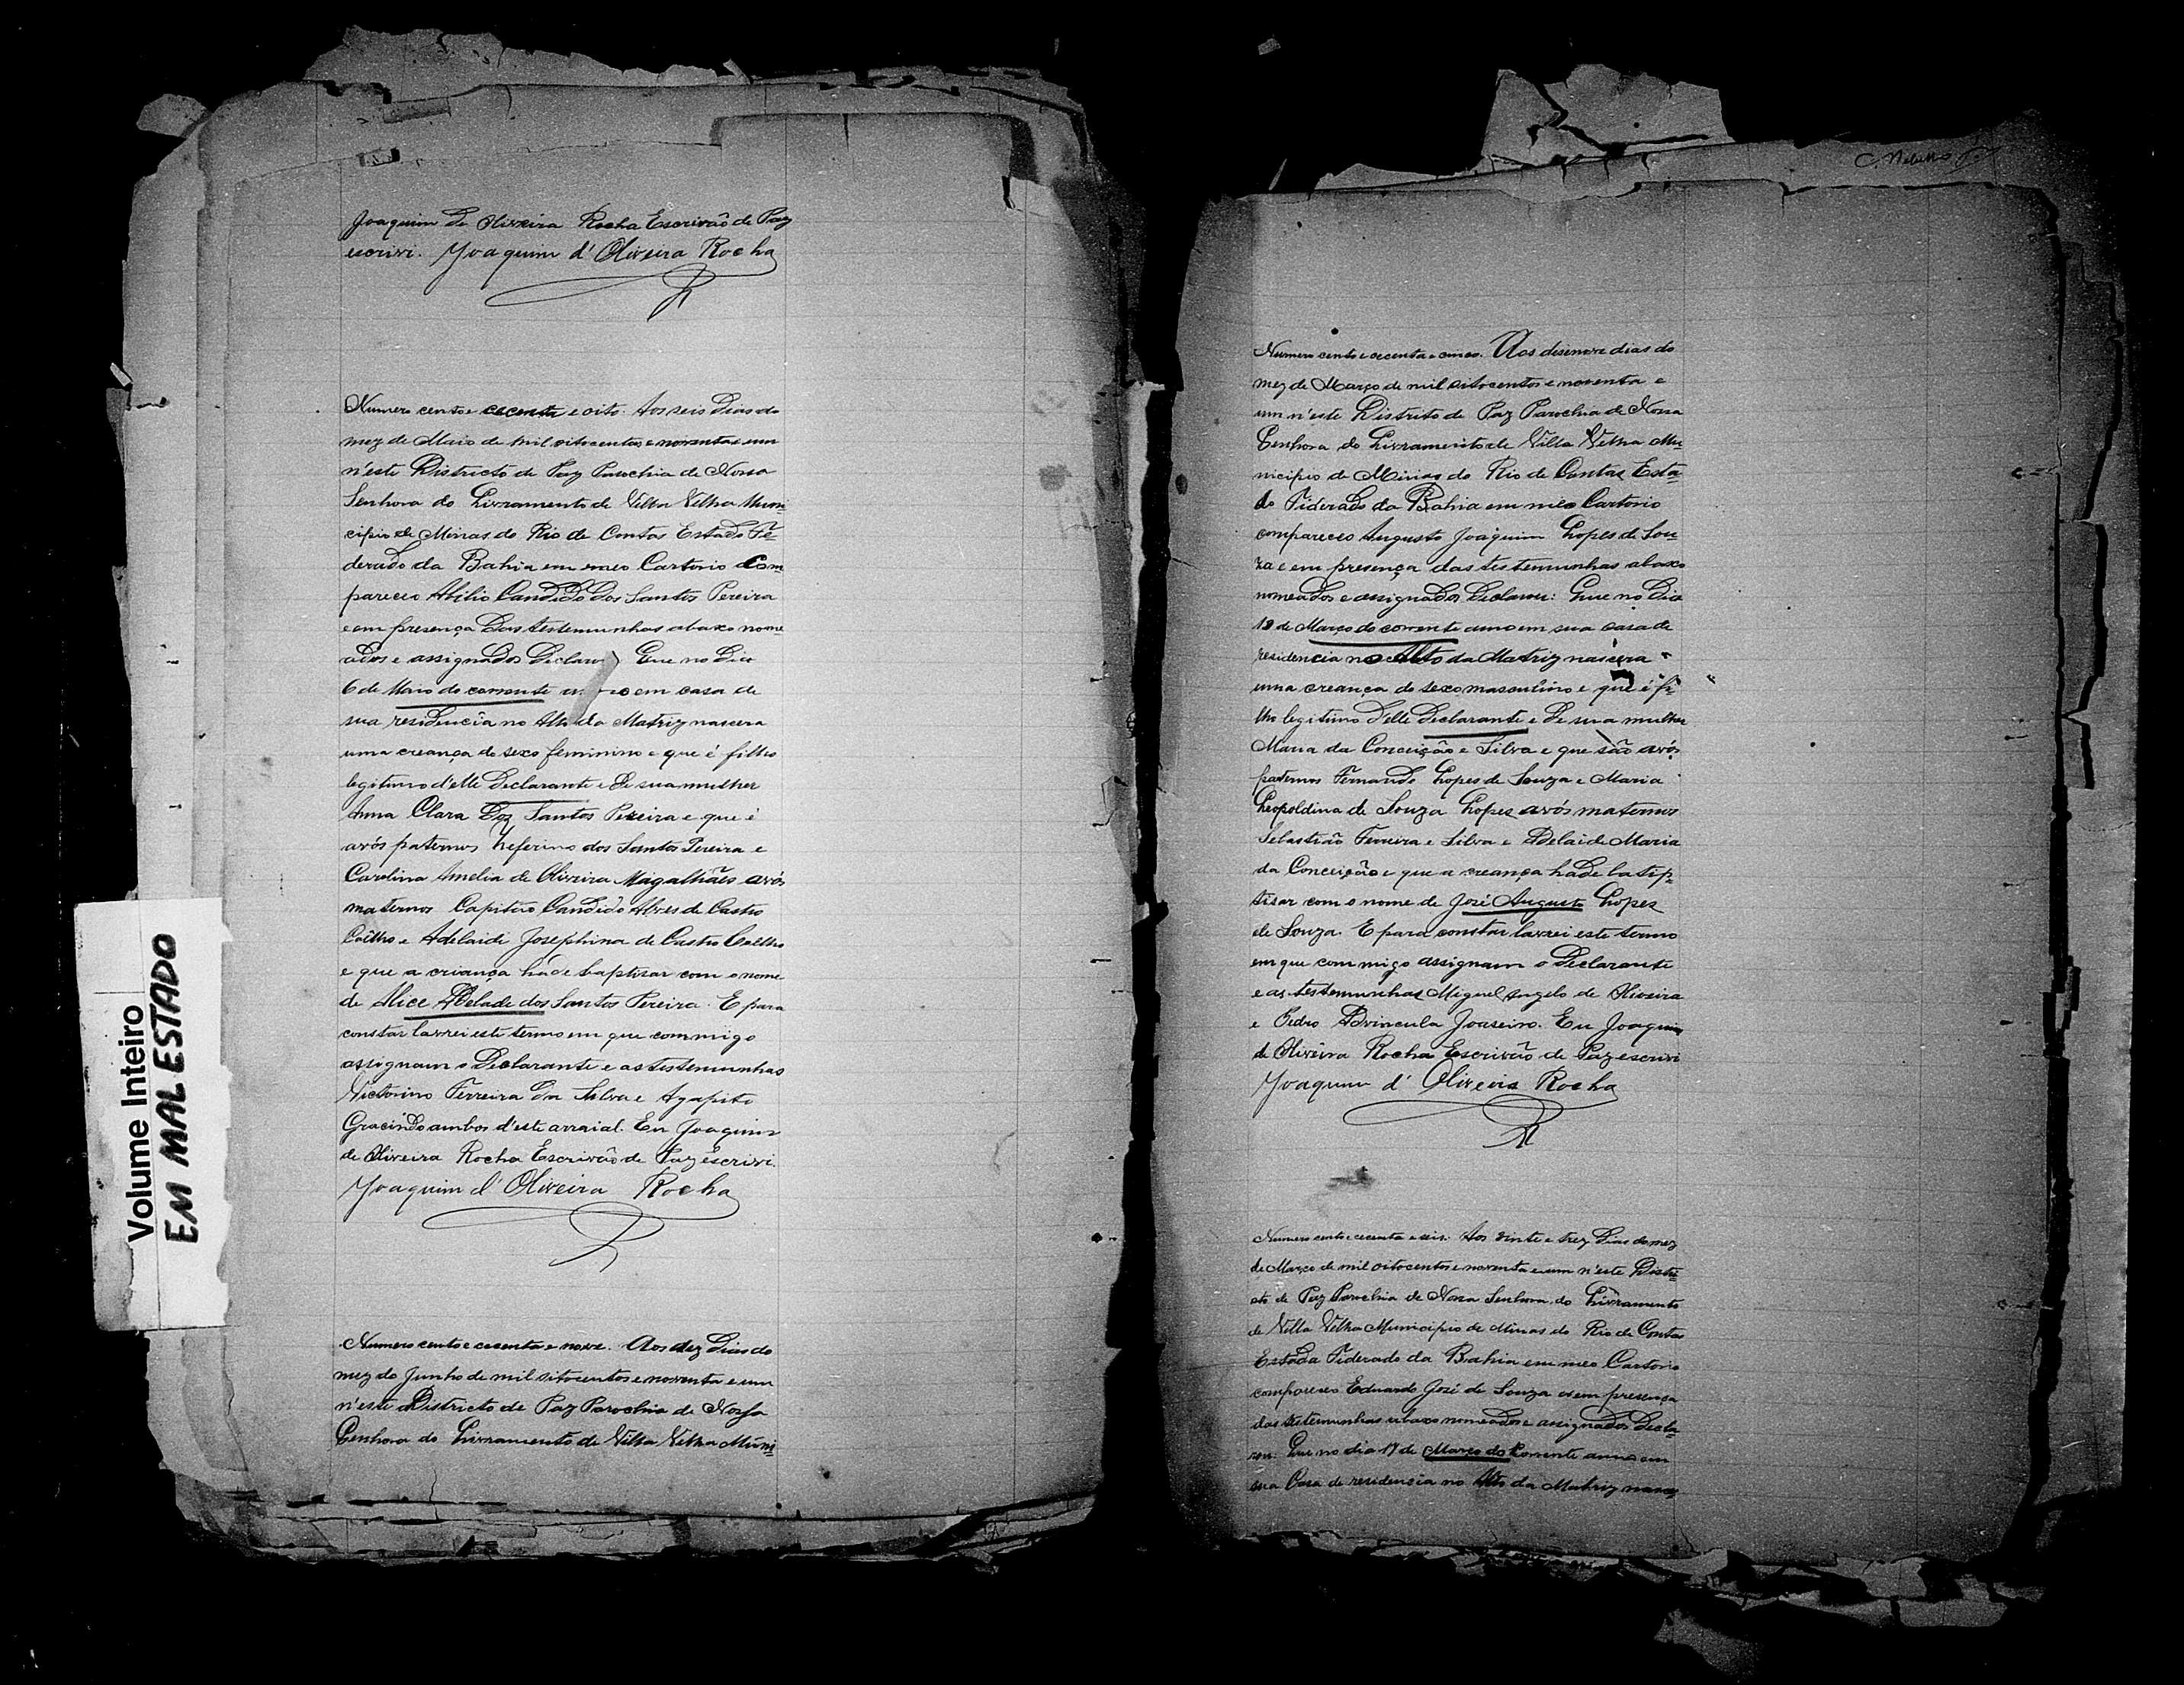 Joaquim de Oliveira Rocha Escrivão de Paz
escrivi. Joaquim d'Oliveira Rocha
Numero cento e cecenta e oito. Aos seis Dias do
mez de Maio de mil oitocentos e noventa e um
n'este Districto de Paz Parochia de Nossa
Senhora do Livramento de Villa Velha Muni-
cipio de Minas do Rio de Contas Estado Fe-
derado da Bahia em meo Cartorio Com
pareceo Abilio Candido dos Santos Pereira
e em presença das testemunhas abaxo nome
ados e assignados Declarou Que no Dia
6 de Maio do corrente em casa de
sua residencia no Alto da Matriz nascera
uma creança de sexo feminino e que é filho
legitimo d'elle Declarante e de sua mulher
Anna Clara dos Santos Pereira e que é
avós paternos Zeferino dos Santos Pereira e
Carolina Amelia de Oliveira Magalhães avós
maternos Capitão Candido Alves de Castro
Coêlho e Adelaide Josephina de Castro Coelho
e que a criança hade baptisar com o nome
de Alice Adelade dos Santos Pereira. E para
constar lavrei este termo em que commigo
assignam o Declarante e as testemunhas
Victorino Ferreira da Silva e Agapito
Gracindo ambos d'este arraial. Eu Joaquim
de Oliveira Rocha Escrivão de Paz escrivi.
Joaquim d'Oliveira Rocha
Numero cento e cecenta e nove. Aos dez Dias do
mez do Junho de mil oitocentos e noventa e um
n'este Districto de Paz Parochia de Nossa
Senhora do Livramento de Villa Velha Muni-
Volume Inteiro
EM MAL ESTADO
Numero cento e cecenta e cinco. Aos desenove dias do
mez de Março de mil oitocentos e noventa e
um n'este Distrito de Paz Parochia de Nossa
Senhora do Livramento de Villa Velha Mu-
nicipio de Minas do Rio de Contas Esta-
do Fiderado da Bahia em meo Cartorio
compareceo Augusto Joaquim Lopes de Sou-
za e em presença das testemunhas abaxo
nomeados e assignados Declarou: Que no Dia
18 de Março do corrente anno em sua casa de
residencia no Alto da Matriz nascera
uma creança do sexo masculino e que é fi-
lho legitimo d'elle Declarante e de sua mulher
Maria da Conceição e Silva e que são avós
paternos Fernando Lopes de Souza e Maria
Leopoldina de Souza Lopes avós maternos
Sebastião Ferreira e Silva e Adelaide Maria
da Conceição e que a creança hade batip-
tisar com o nome de José Augusto Lopes
de Souza. E para constar lavrei este termo
em que commigo assignam o Declarante
e as testemunhas Miguel Angelo de Oliveira
e Pedro Advincula Joaseiro. Eu Joaquim
de Oliveira Rocha Escrivão de Paz escrivi
Joaquim d'Oliveira Rocha
Numero cento e cecenta e seis. Aos vinte e trez Dias do mez
de Março de mil oitocentos e noventa e um n'este Distri-
cto de Paz Parochia de Nossa Senhora do Livramento
de Villa Velha Municipio de Minas do Rio de Contas
Estado Fiderado da Bahia em meo Cartorio
compareceo Eduardo José de Souza e em presença
das testemunhas abaxo nomeados e assignados Decla-
rou: Que no dia 17 de Março do Corrente anno em
sua Casa de residencia no Alto da Matriz nasce